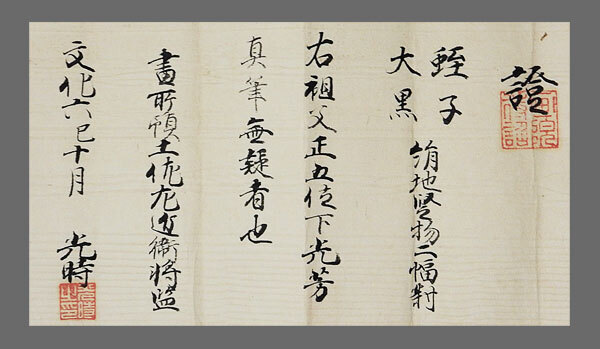 證
蛭子
大黒
絹地竪物二幅對
右祖父正五位下光芳
真筆無疑者也
畫所預土佐左近衛將監
文化六巳十月 光時